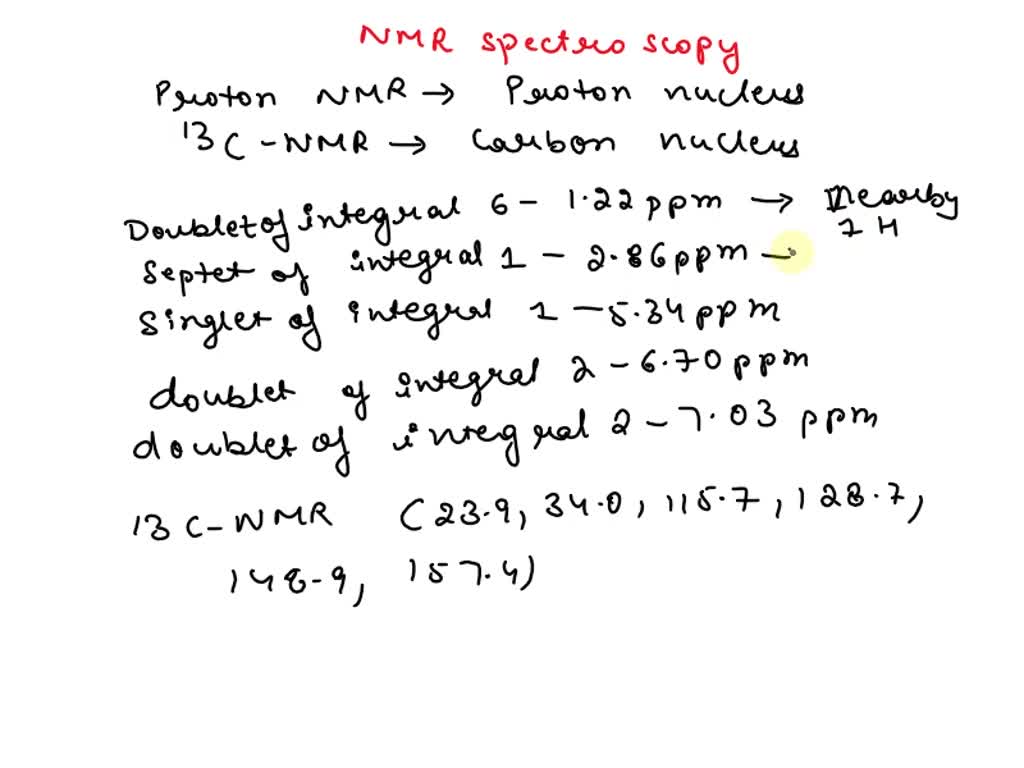 NMR spectroscopy
Proton NMR → Proton nucleus
13C-NMR → Carbon nucleus
Doublet of integral 6 - 1.22 ppm → Nearby
1H
Septet of integral 1 - 2.86 ppm -
Singlet of integral 1 - 5.34 ppm
doublet of integral 2 - 6.70 ppm
doublet of integral 2 - 7.03 ppm
13C-NMR (23.9, 34.0, 115.7, 128.7,
148.9, 157.4)